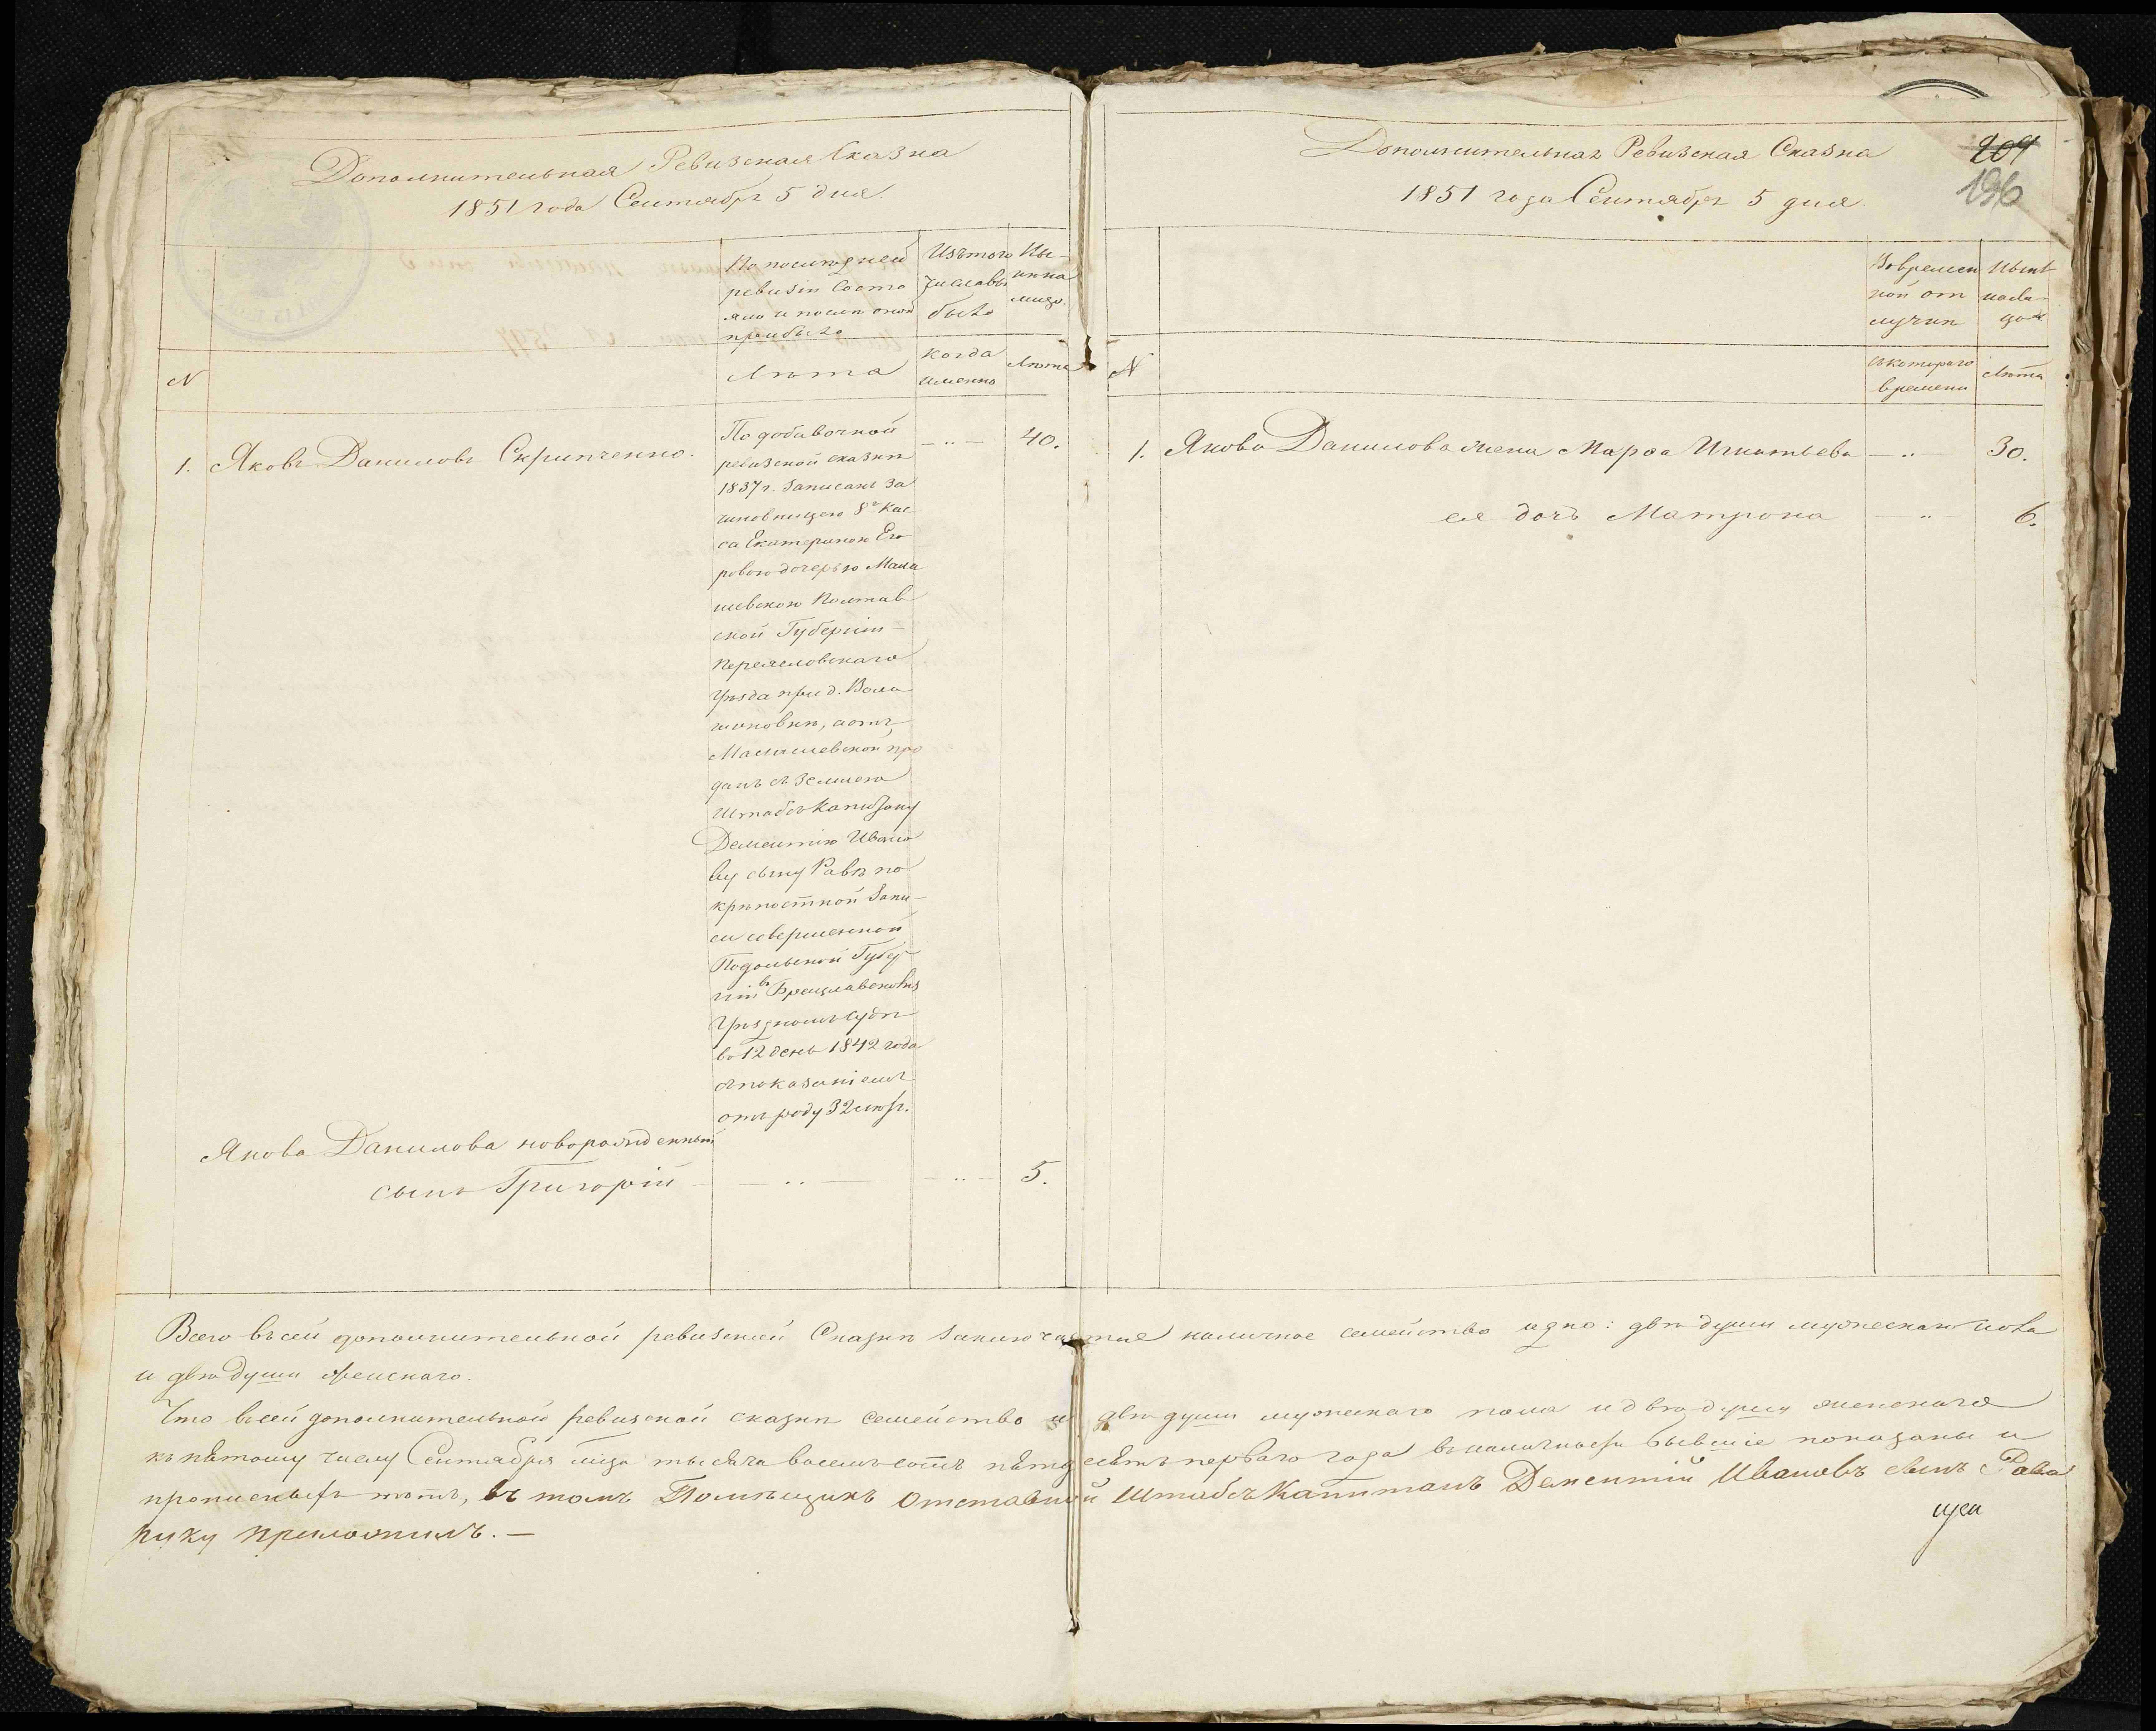 Дополнительная Ревизская Сказка
1851 года Сентября 5 дня.
По последней
ревизіи состо
яло и после оной
прибыло
Изъ того
числа вы
было
Ны-
нѣ на
лицо.
N
Лѣта
когда
именно
Лѣта
1. Яковъ Даниловъ Скрипченко.
По добавочной
ревизской сказкѣ
1837 г. Записанъ за
чиновницею 8го Клас
са Екатериною Его
ровою дочерью Мали
шевскою Полтав
ской Губерніи
Переяславскаго
Уѣзда при д. Воли
шиновкѣ, а отъ
Малишевской про
данъ съ землею
Штабсъ Капитану
Дементію Ивано
ву сыну Равѣ по
крѣпостной Запи-
си совершенной
Подольской Губер
ніи въ Брацлавскомъ
Уѣздномъ Судѣ
въ 12 день 1842 года
съ показаніемъ
отъ роду 32 лѣтъ.
— „ —
40.
Якова Данилова новорожденный
сынъ Григорій
— „ —
— „ —
5.
Дополнительная Ревизская Сказка
1851 года Сентября 5 дня
204
196
Во времен
ной от
лучкѣ
Нынѣ
на ли-
цо
N
съ котораго
времени
Лѣта
1. Якова Данилова жена Марфа Игнатьева — „ — 30.
ея дочь Матрона — „ 6.
Всего въ сей дополнительной ревизской Сказкѣ заключается наличное семейство одно: двѣ души мужескаго пола
и двѣ души женскаго.
Что въ сей дополнительной ревизской сказкѣ семейство и двѣ души мужескаго пола и двѣ души женскаго
къ пятому числу Сентября тысяча восемь сотъ пятдесятъ перваго года въ наличности бывшіе показаны и
прописныхъ нѣтъ, въ томъ Помѣщикъ отставной Штабсъ Капитанъ Дементій Ивановъ сынъ Рава
руку приложилъ. —